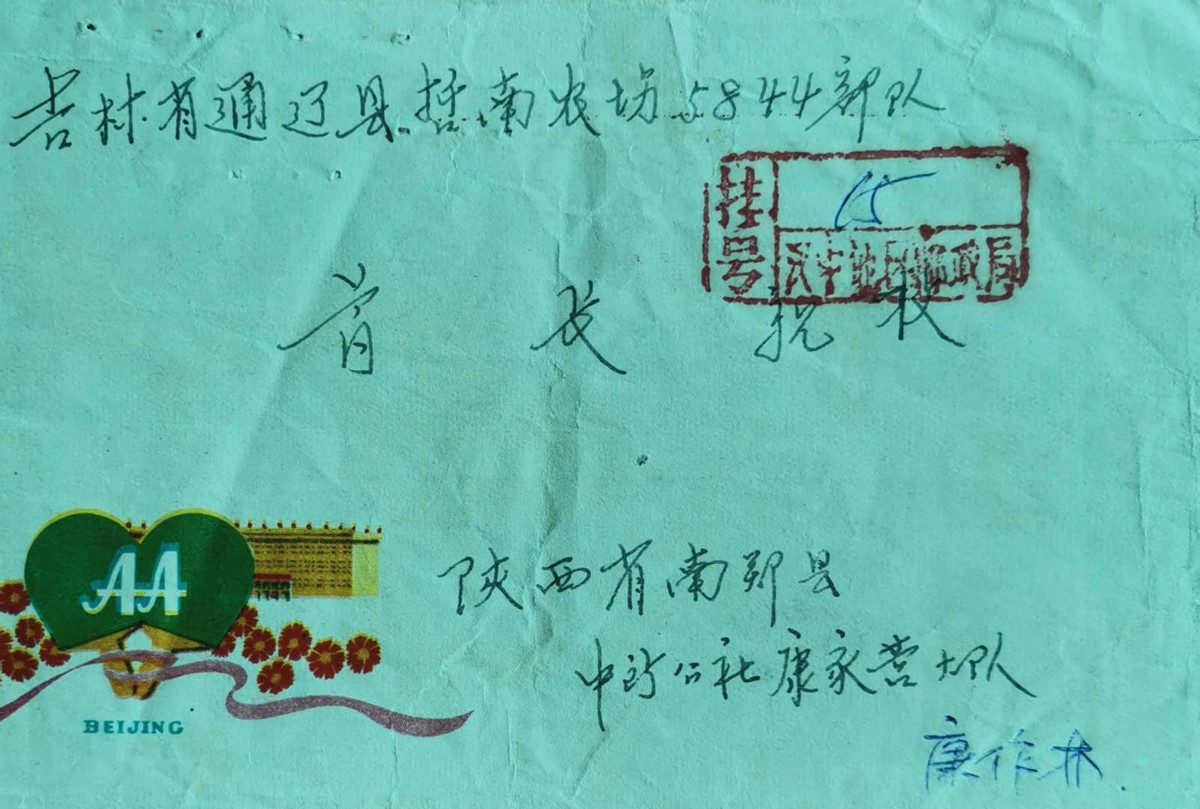 吉林省通辽县.哲南农场5844部队
挂号
15
首长 祝收
AA
BEIJING
陕西省南郑县
中所公社康家营大队
康作林.